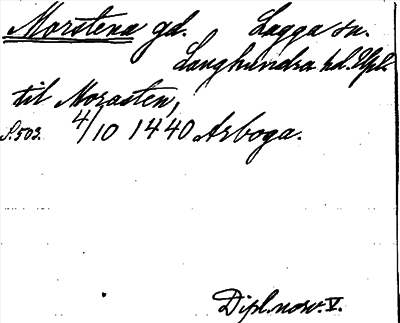 Morstena gd. Lagga sn.
Långhundra hd. Upl.
til Morasten,
S. 503. 4/10 1440 Arboga.
Dipl. norv. V.